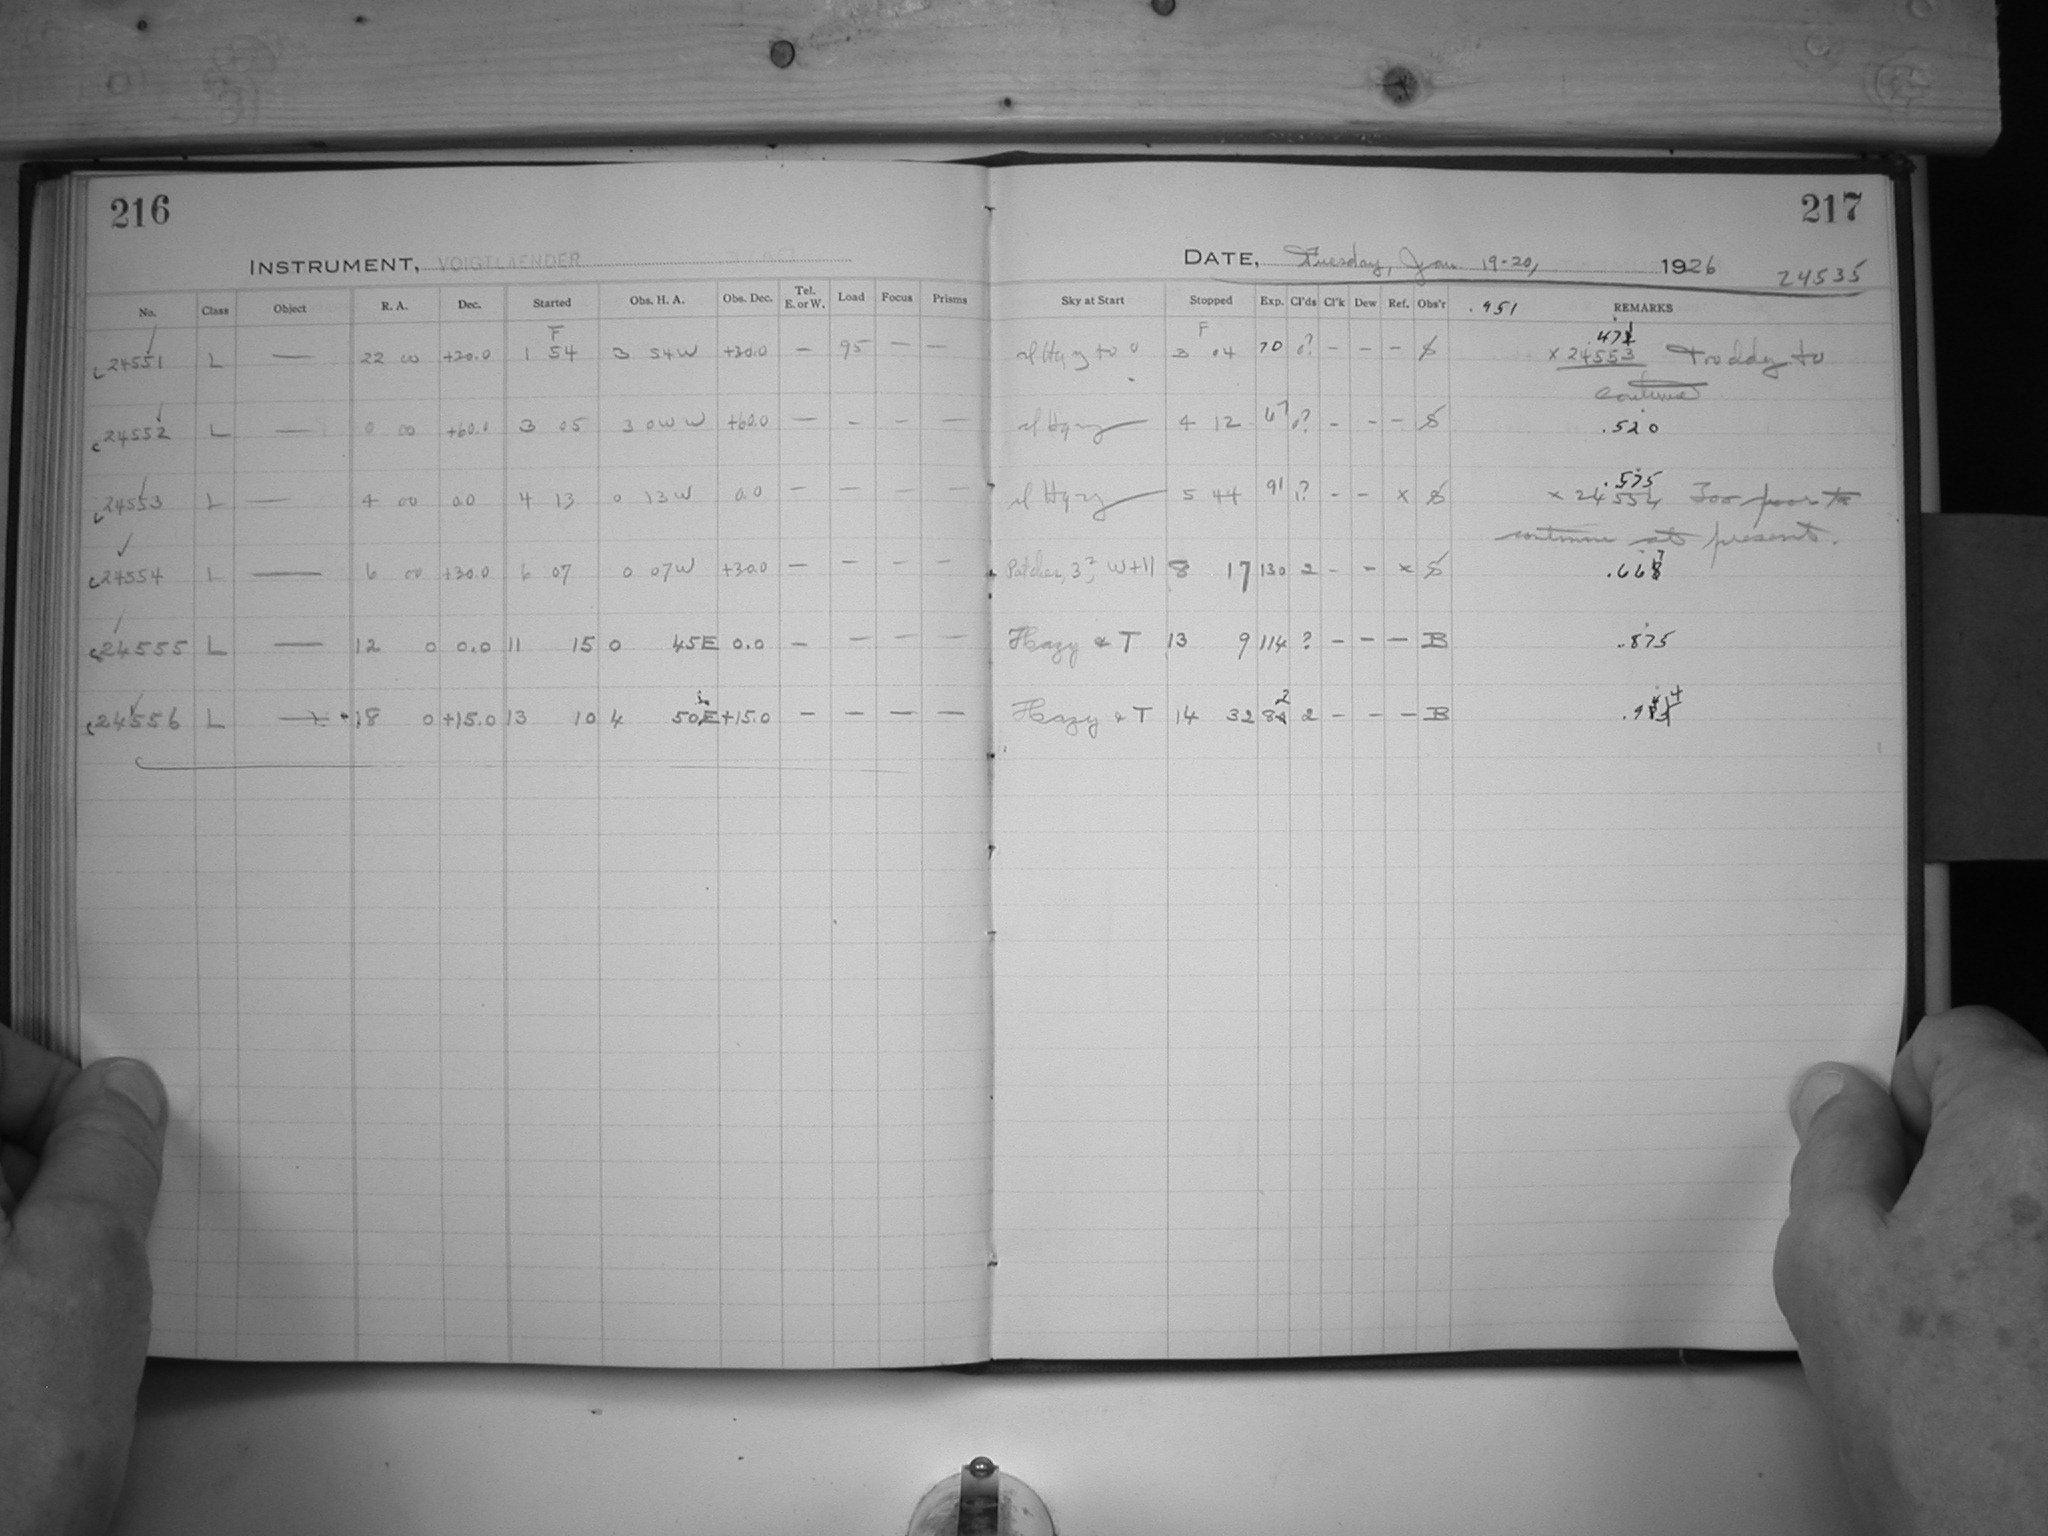 216
217
INSTRUMENT, VOIGTLAENDER
DATE, Tuesday, Jan. 19-20, 1926 24535
No. Class Object R. A. Dec. Started Obs. H. A. Obs. Dec. Tel. E. or W. Load Focus Prisms
Sky at Start Stopped Exp. Cl'ds Cl'k Dew Ref. Obs'r .951 REMARKS
F
F
c24551 L — 22 00 1 54 3 54W +30.0 — 95 — —
3 04 70 ? — — — × 24553 to
continue
c24552 L — 0 00 +60.0 3 05 3 0 W +60.0 — — — —
4 12 67 ? — — — .520
c24553 L — 4 00 0.0 4 13 0 13W 0.0 — — — —
5 44 91 ? — — × .575
× 24554 Too poor to
continue at present.
c24554 L — 6 00 +30.0 6 07 0 07W +30.0 — — — —
Patches, W+11 8 17 130 2 — — × .66
c24555 L — 12 0 0.0 11 15 0 45E 0.0 — — — —
Hazy & T 13 9 114 ? — — — B .875
c24556 L — 18 0 +15.0 13 10 4 50E +15.0 — — — —
Hazy & T 14 32 82 2 — — — B